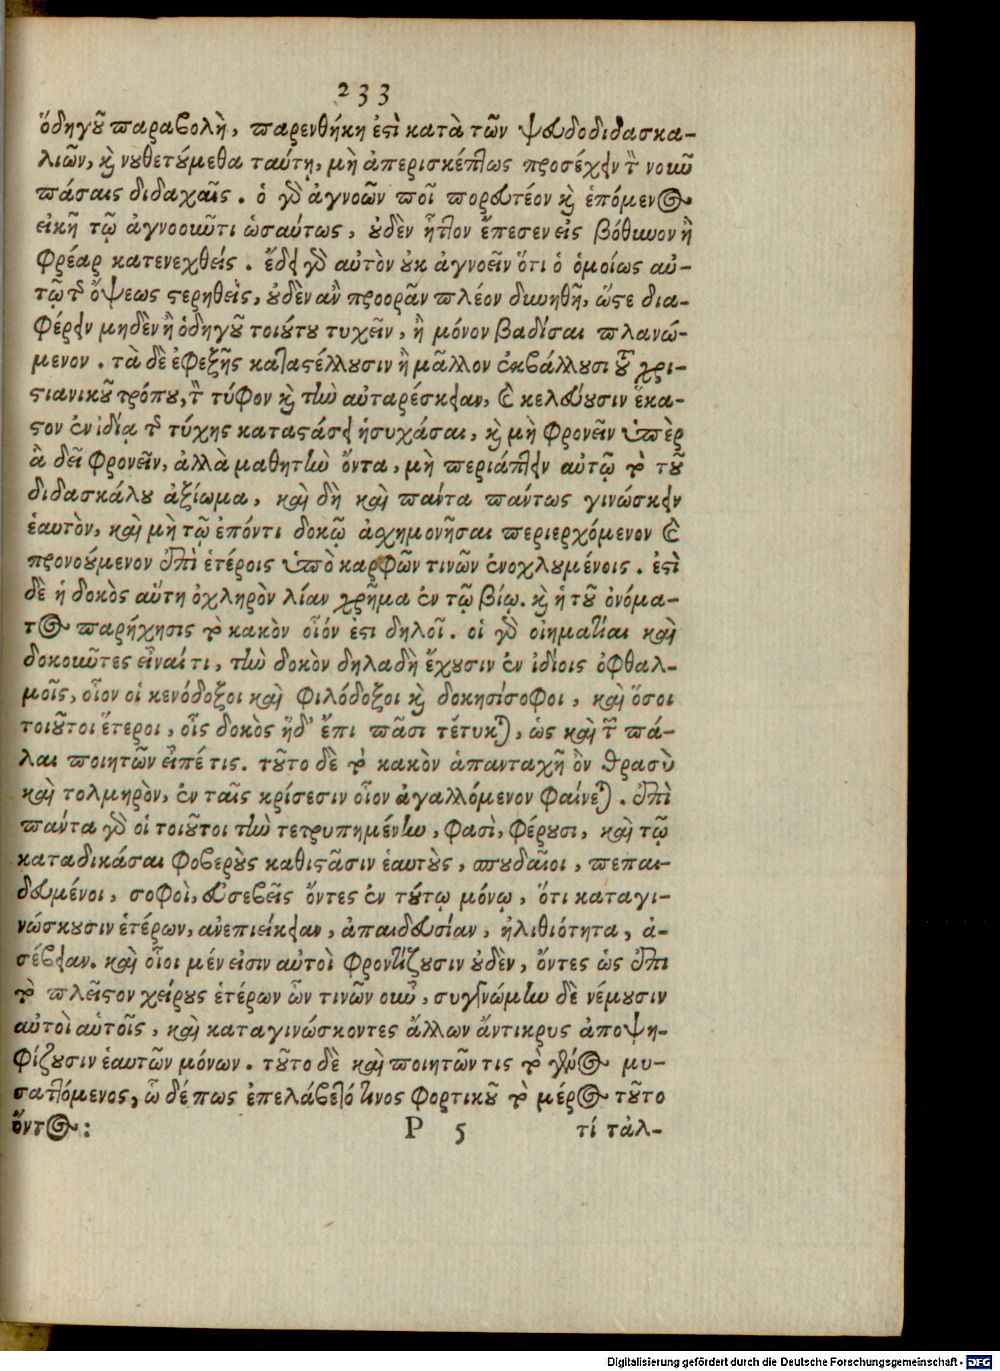 233
ὁδηγοῦ παραβολὴ, παρενθήκη ἐστὶ κατὰ τῶν ψευδοδιδασκα-
λιῶν, καὶ νουθετούμεθα ταύτῃ, μὴ ἀπερισκέπτως προσέχειν τὸν νοιῦ
πάσαις διδαχαῖς. ὁ γὰρ ἀγνοῶν ποῖ πορευτέον καὶ ἑπόμενος
εἰκῆ τῷ ἀγνοοιῶτι ὡσαύτως, οὐδὲν ἧττον ἔπεσεν εἰς βόθιωον ἢ
φρέαρ κατενεχθείς. ἔδει γὰρ αὐτὸν οὐκ ἀγνοεῖν ὅτι ὁ ὁμοίως αὐ-
τῷ τῆς ὄψεως στερηθεὶς, οὐδὲν ἂν προορᾶν πλέον διωηθῇ, ὥστε δια-
φέρειν μηδὲν ἢ ὁδηγοῦ τοιούτου τυχεῖν, ἢ μόνον βαδίσαι πλανώ-
μενον. τὰ δὲ ἐφεξῆς καταστέλλουσιν ἢ μᾶλλον ἐκβάλλουσι τοῦ χρι-
στιανικοῦ τρόπου, τὸν τύφον καὶ τὴν αὐταρέσκειαν, καὶ κελεύουσιν ἕκα-
στον ἐν ἰδίᾳ τῆς τύχης καταστάσει ἡσυχάσαι, καὶ μὴ φρονεῖν ὑπὲρ
ἃ δεῖ φρονεῖν, ἀλλὰ μαθητὴν ὄντα, μὴ περιάπτειν αὐτῷ τὸ τοῦ
διδασκάλου ἀξίωμα, καὶ δὴ καὶ πάντα πάντως γινώσκειν
ἑαυτὸν, καὶ μὴ τῷ ἐπόντι δοκῷ ἀσχημονῆσαι περιερχόμενον καὶ
προνούμενον ἐπὶ ἑτέροις ὑπὸ καρφῶν τινῶν ἐνοχλουμένοις. ἐστὶ
δὲ ἡ δοκὸς αὕτη ὀχληρὸν λίαν χρῆμα ἐν τῷ βίῳ. καὶ ἡ τοῦ ὀνόμα-
τος παρήχησις τὸ κακὸν οἷόν ἐστι δηλοῖ. οἱ γὰρ οἰηματίαι καὶ
δοκοιῶτες εἶναί τι, τὴν δοκὸν δηλαδὴ ἔχουσιν ἐν ἰδίοις ὀφθαλ-
μοῖς, οἷον οἱ κενόδοξοι καὶ φιλόδοξοι καὶ δοκησίσοφοι, καὶ ὅσοι
τοιοῦτοι ἕτεροι, οἷς δοκὸς ἥδ' ἔπι πᾶσι τέτυκται, ὡς καὶ τῶν πά-
λαι ποιητῶν εἶπέ τις. τοῦτο δὲ τὸ κακὸν ἁπανταχῆ ὂν θρασὺ
καὶ τολμηρὸν, ἐν ταῖς κρίσεσιν οἷον ἀγαλλόμενον φαίνεται. ἐπὶ
πάντα γὰρ οἱ τοιοῦτοι τὴν τετρυπημένην, φασὶ, φέρουσι, καὶ τῷ
καταδικάσαι φοβεροὺς καθιστᾶσιν ἑαυτοὺς, σπουδαῖοι, πεπαι-
δευμένοι, σοφοὶ, εὐσεβεῖς ὄντες ἐν τούτῳ μόνῳ, ὅτι καταγι-
νώσκουσιν ἑτέρων, ἀνεπιείκειαν, ἀπαιδευσίαν, ἠλιθιότητα, ἀ-
σέβειαν. καὶ οἷοι μέν εἰσιν αὐτοὶ φροντίζουσιν οὐδὲν, ὄντες ὡς ἐπὶ
τὸ πλεῖστον χείρους ἑτέρων ὧν τινων οιῶ, συγγνώμην δὲ νέμουσιν
αὐτοὶ αὑτοῖς, καὶ καταγινώσκοντες ἄλλων ἄντικρυς ἀποψη-
φίζουσιν ἑαυτῶν μόνων. τοῦτο δὲ καὶ ποιητῶν τις τὸ γένος μυ-
σαττόμενος, ὧδέ πως ἐπελάβετό τινος φορτικοῦ τὸ μέρος τοῦτο
ὄντος:
P 5 τί τἀλ-
Digitalisierung gefördert durch die Deutsche Forschungsgemeinschaft - DFG